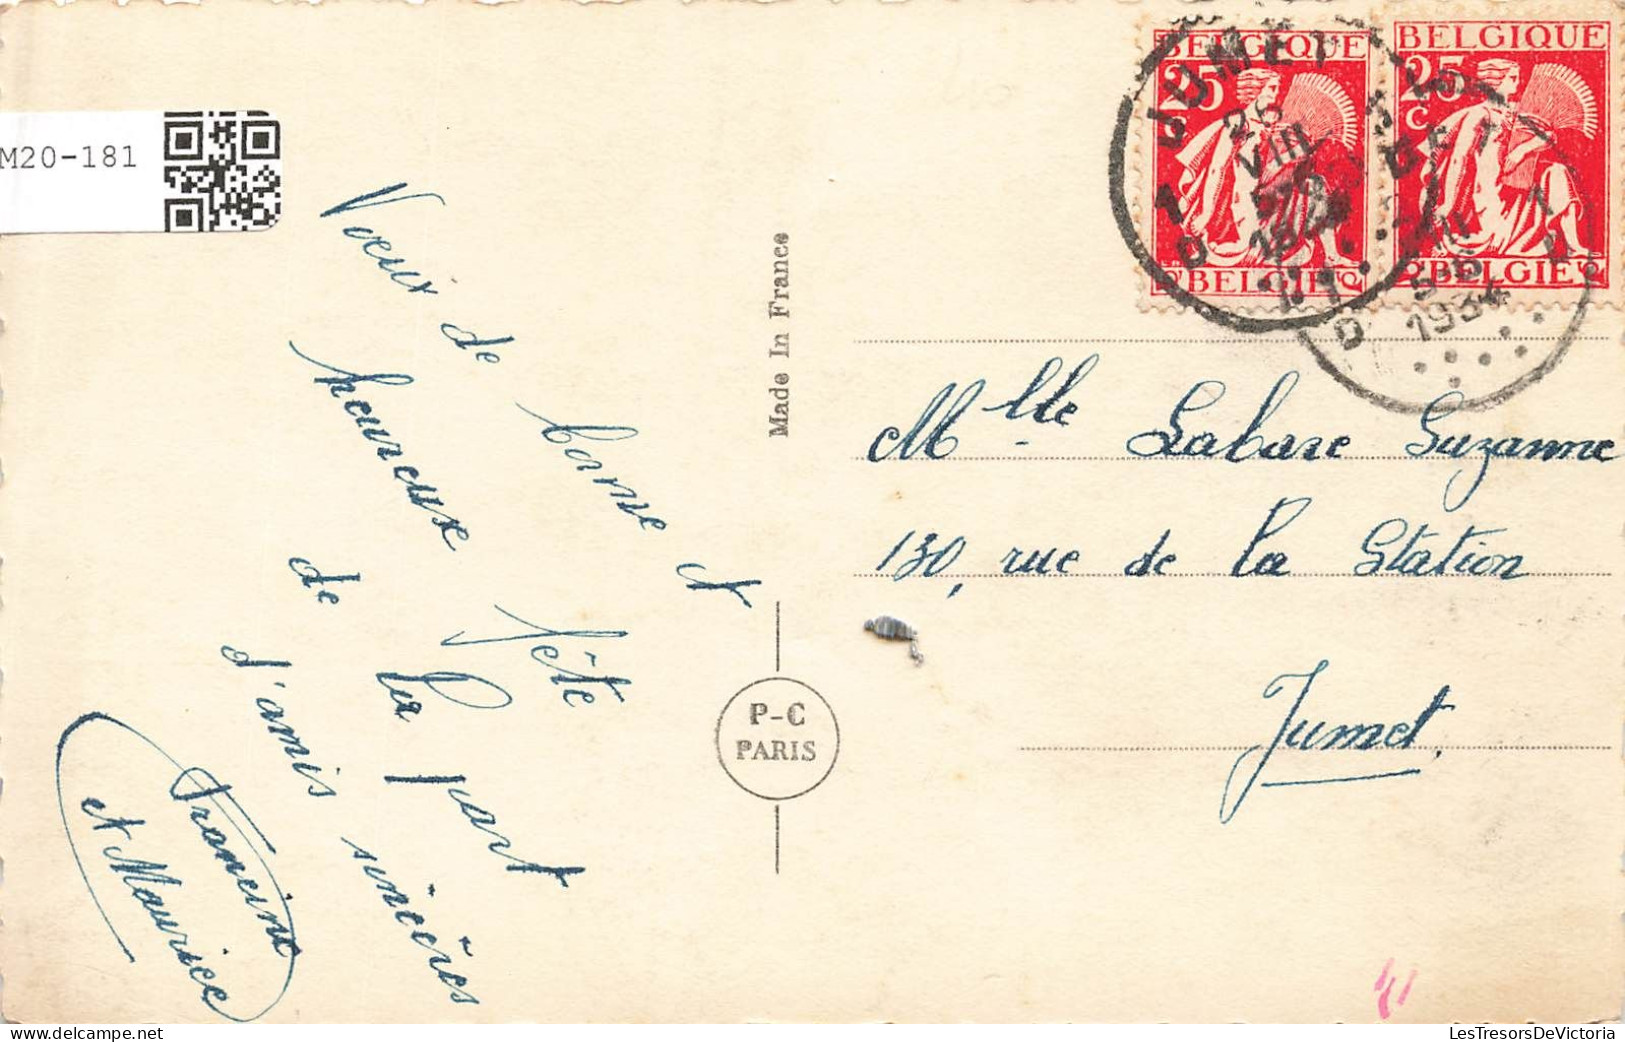 M20-181
Voeux de bonne et
heureuse fête
de la part
d'amis sincères
Francine
et Maurice
Made In France
P-C
PARIS
BELGIQUE
25
C
BELGIE
BELGIQUE
25
C
BELGIE
JUMET
26
VIII
1934
JUMET 1
VIII
1934
Mlle Labare Suzanne
130, rue de la Station
Jumet.
LesTresorsDeVictoria